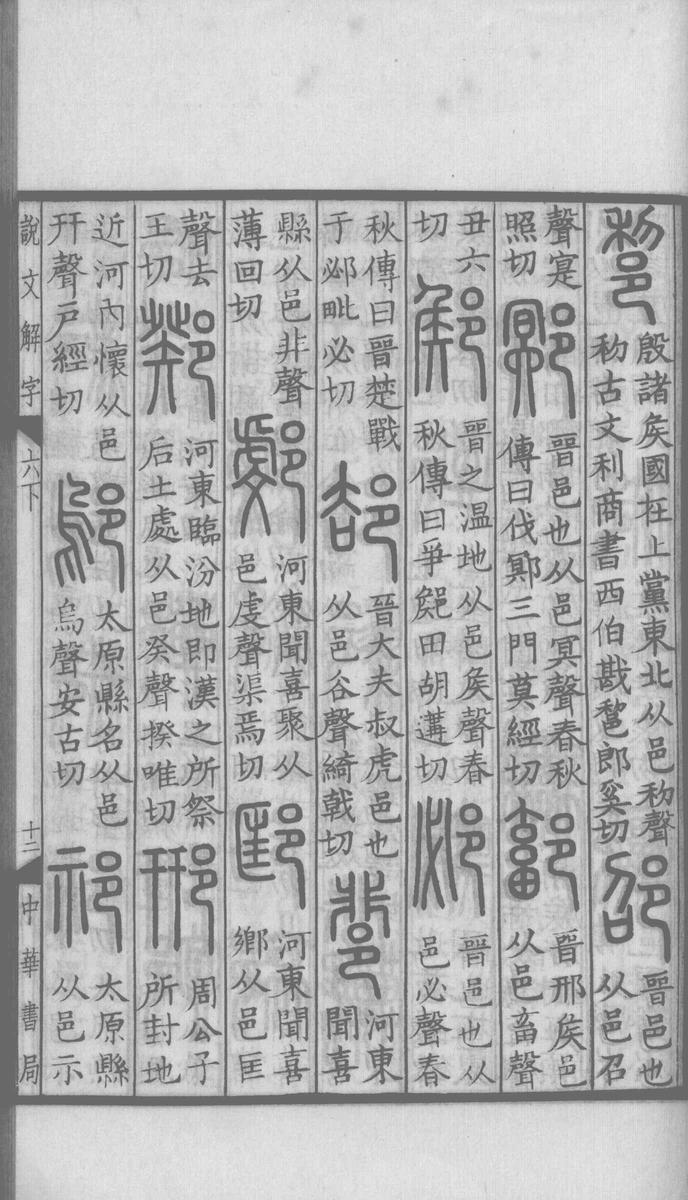 𨛫
殷諸矦國在上黨東北从邑𥝢聲
𥝢古文利商書西伯戡𨛫郎奚切
邵
晉邑也
从邑召
聲寔
照切
鄍
晉邑也从邑冥聲春秋
傳曰伐鄍三門莫經切
鄐
晉邢矦邑
从邑畜聲
丑六
切
鄇
晉之温地从邑矦聲春
秋傳曰爭鄇田胡遘切
邲
晉邑也从
邑必聲春
秋傳曰晉楚戰
于邲毗必切
郤
晉大夫叔虎邑也
从邑谷聲綺戟切
河東
聞喜
縣从邑非聲
薄回切
河東聞喜聚从
邑虔聲渠焉切
邼
河東聞喜
鄉从邑匡
聲去
王切
鄈
河東臨汾地即漢之所祭
后土處从邑癸聲揆唯切
邢
周公子
所封地
近河內懷从邑
幵聲戶經切
鄔
太原縣名从邑
烏聲安古切
祁
太原縣
从邑示
說文解字 六下 十二 中華書局